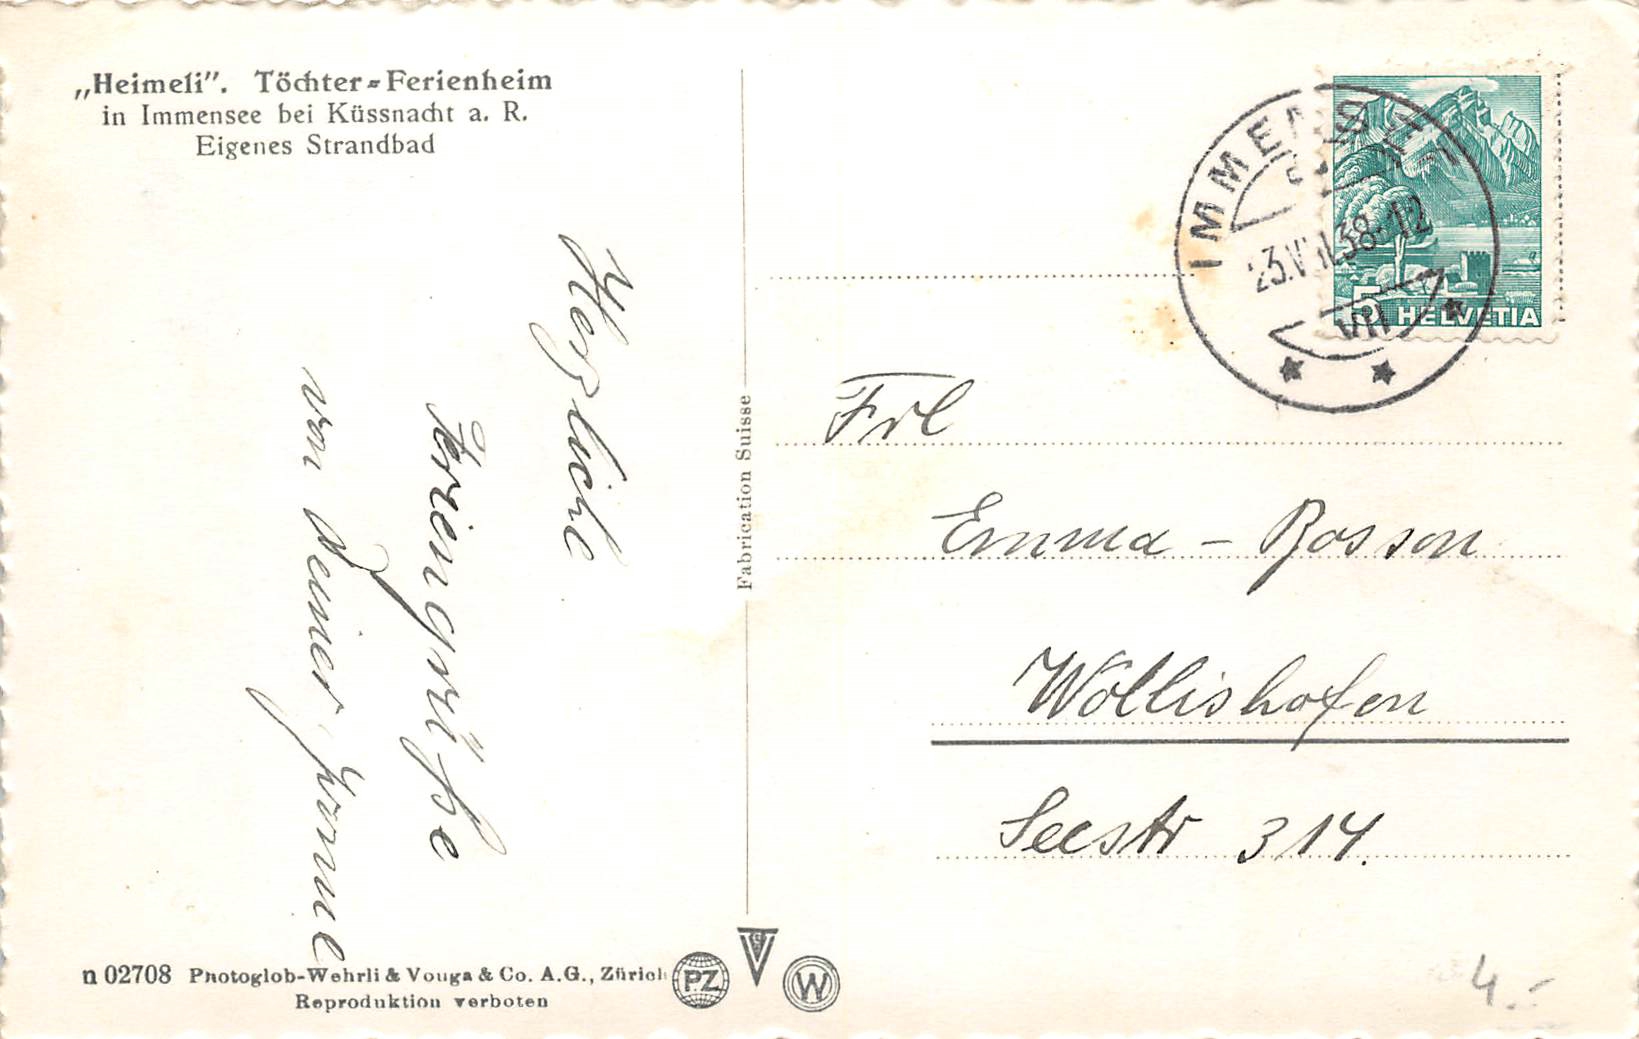 „Heimeli”. Töchter=Ferienheim
in Immensee bei Küssnacht a. R.
Eigenes Strandbad
Herzliche
Feriengrüße
von Deiner Yvonne
Fabrication Suisse
IMMENSEE
23.VII.38-12
VII
5 HELVETIA
Frl
Emma - Rosson
Wollishofen
Seestr 314.
n 02708 Photoglob-Wehrli & Vouga & Co. A.G., Zürich
Reproduktion verboten
PZ
W
4.-